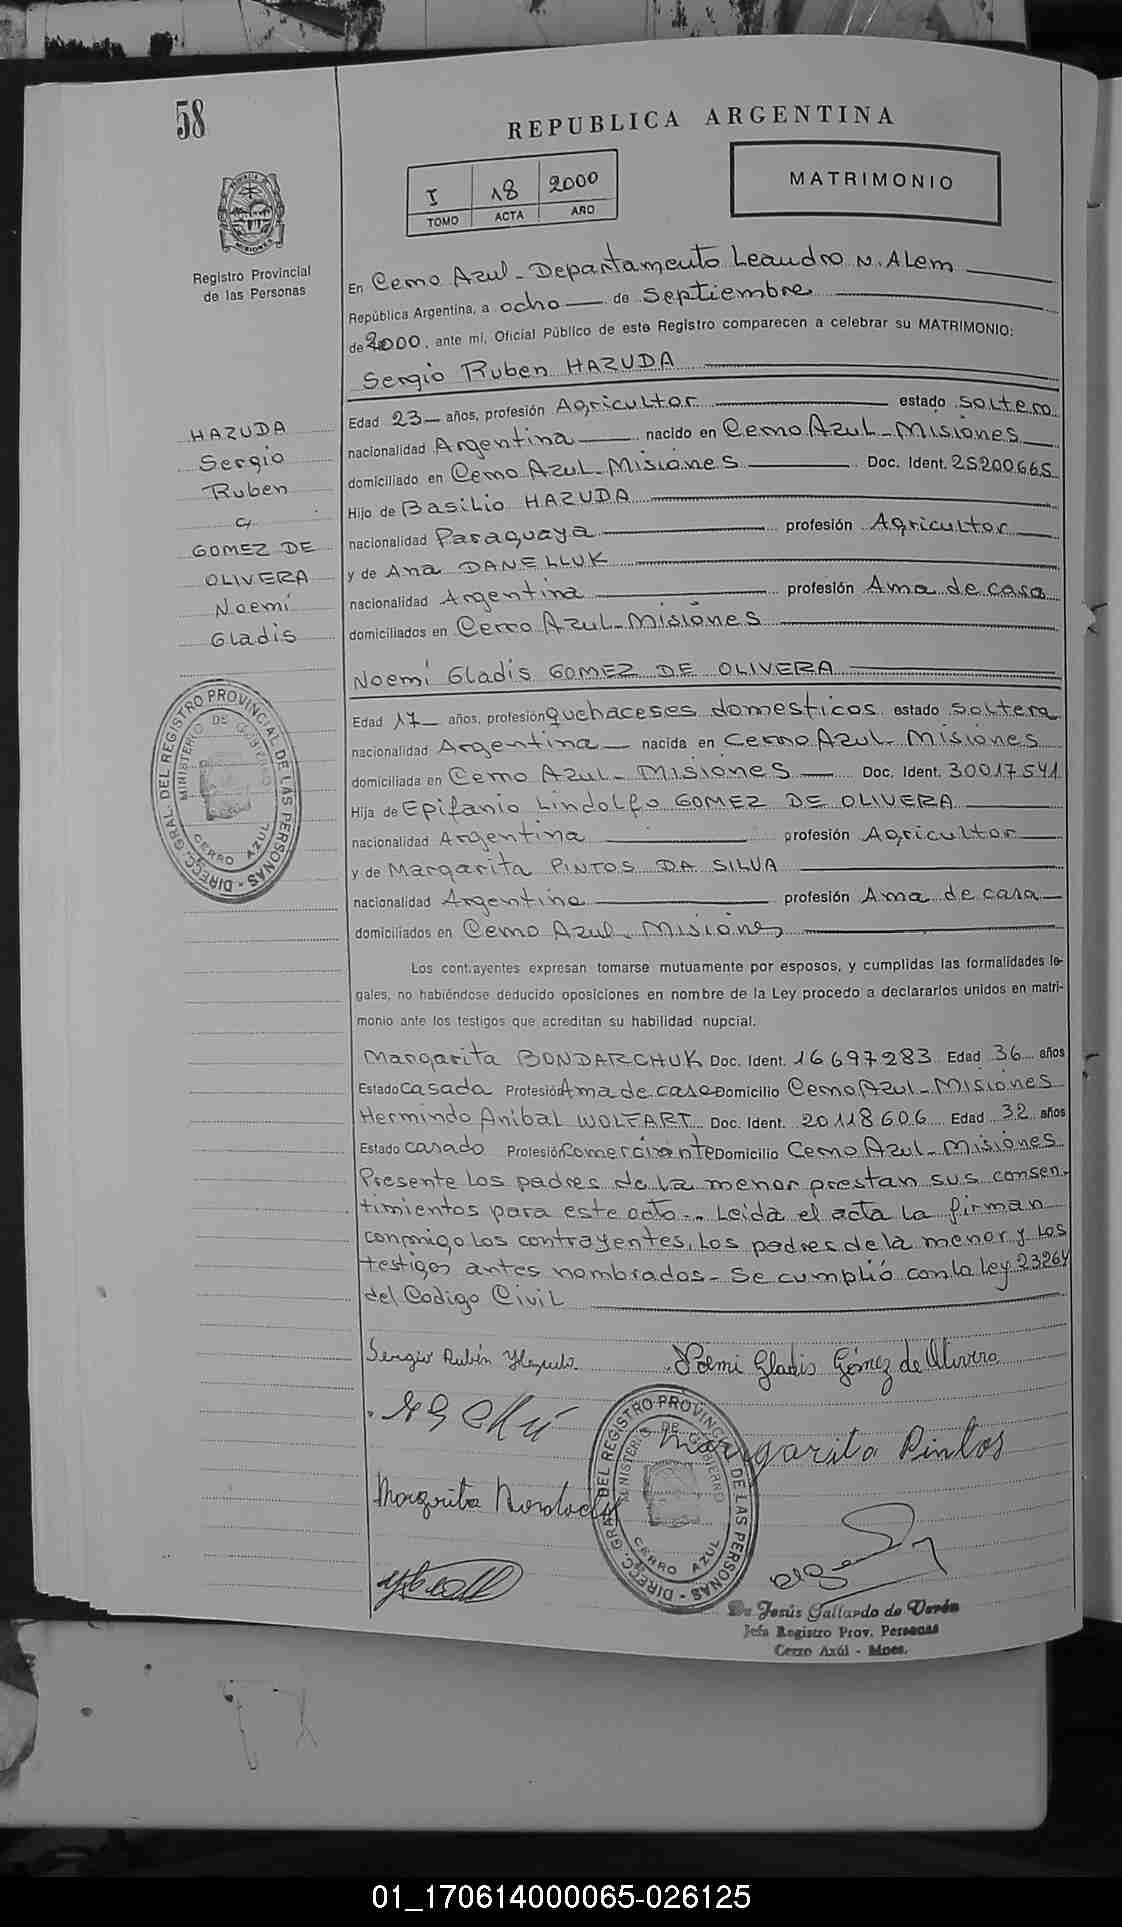 58
REPUBLICA ARGENTINA
I 18 2000
TOMO ACTA AÑO
MATRIMONIO
Registro Provincial
de las Personas
En Cerro Azul - Departamento Leandro N. Alem
República Argentina, a ocho de Septiembre
de 2000, ante mí, Oficial Público de este Registro comparecen a celebrar su MATRIMONIO:
Sergio Ruben HAZUDA
Edad 23 años, profesión Agricultor estado soltero
nacionalidad Argentina nacido en Cerro Azul - Misiones
domiciliado en Cerro Azul - Misiones Doc. Ident. 25200665
Hijo de Basilio HAZUDA
nacionalidad Paraguaya profesión Agricultor
y de Ana DANELLUK
nacionalidad Argentina profesión Ama de casa
domiciliados en Cerro Azul - Misiones
HAZUDA
Sergio
Ruben
c/
GOMEZ DE
OLIVERA
Noemí
Gladis
Noemí Gladis GOMEZ DE OLIVERA
Edad 17 años, profesión quehaceses domesticos estado soltera
nacionalidad Argentina nacida en Cerro Azul - Misiones
domiciliada en Cerro Azul - Misiones Doc. Ident. 30017541
Hija de Epifanio Lindolfo GOMEZ DE OLIVERA
nacionalidad Argentina profesión Agricultor
y de Margarita PINTOS DA SILVA
nacionalidad Argentina profesión Ama de casa
domiciliados en Cerro Azul - Misiones
DIRECC. GRAL DEL REGISTRO PROVINCIAL DE LAS PERSONAS
MINISTERIO DE GOBIERNO
CERRO AZUL
Los contrayentes expresan tomarse mutuamente por esposos, y cumplidas las formalidades le-
gales, no habiéndose deducido oposiciones en nombre de la Ley procedo a declararlos unidos en matri-
monio ante los testigos que acreditan su habilidad nupcial.
Margarita BONDARCHUK Doc. Ident. 16697283 Edad 36 años
Estado Casada Profesión Ama de casa Domicilio Cerro Azul - Misiones
Hermindo Anibal WOLFART Doc. Ident. 20118606 Edad 32 años
Estado casado Profesión Comerciante Domicilio Cerro Azul - Misiones
Presente los padres de la menor prestan sus consen-
timientos para este acto.- Leida el acta la firman
conmigo los contrayentes, los padres de la menor y los
testigos antes nombrados - Se cumplió con la ley 23264
del Codigo Civil
Sergio Rubén Hazuda Noemi Gladis Gómez de Olivera
Margarita Pintos
Margarita
DIRECC. GRAL DEL REGISTRO PROVINCIAL DE LAS PERSONAS
MINISTERIO DE GOBIERNO
CERRO AZUL
De Jesús Gallardo de Verón
Jefa Registro Prov. Personas
Cerro Azúl - Mnes.
01_170614000065-026125